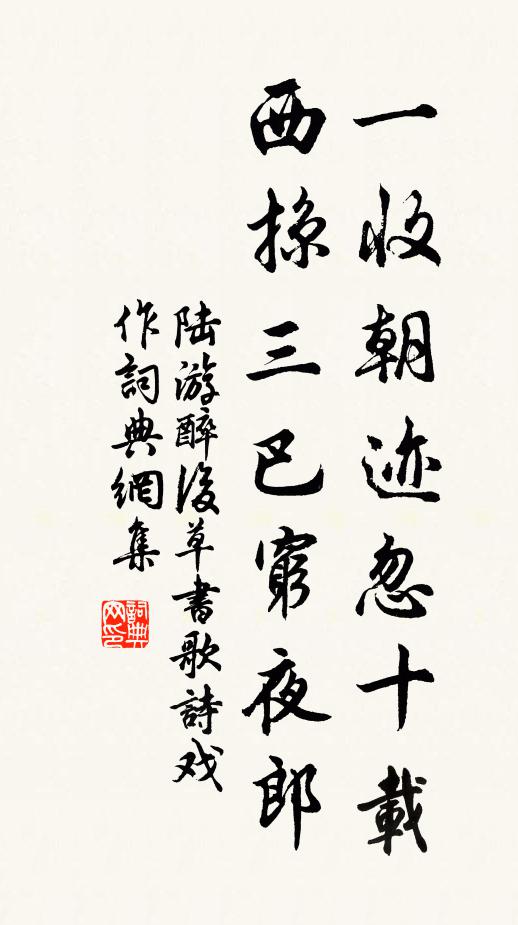 一收朝迹忽十載
西掠三巴窮夜郎
陆游醉後草書歌詩戏
作詞典網集
詞典网印